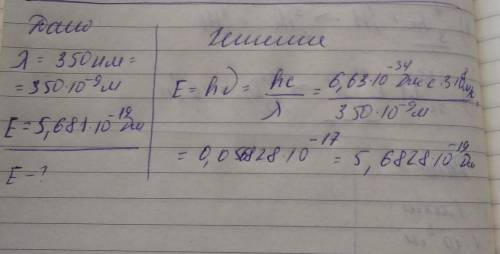 Дано
λ = 350 нм =
= 350·10⁻⁹ м
E = 5,681·10⁻¹⁹ Дж
E - ?
Решение
E = hν = hc/λ = 6,63·10⁻³⁴ Дж·с·3·10⁸ м/с / 350·10⁻⁹ м
= 0,056828·10⁻¹⁷ = 5,6828·10⁻¹⁹ Дж